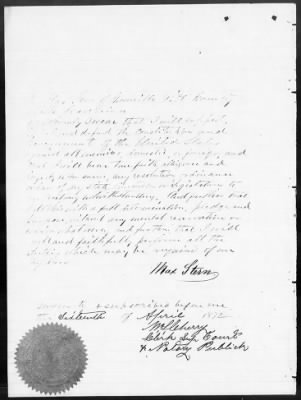 I Max Stern of Greenville Pitt County
N. Carolina
do solemnly swear that I will support,
protect and defend the Constitution and
Government of the United States
against all enemies, domestic or foreign, and
that I will bear true faith, allegiance and
loyalty to the same, any resolution, ordinance
or law of any state Convention or Legislature to
the contrary notwithstanding. And further that
I do this with a full determination, pledge and
purpose, without any mental reservation or
evasion whatsoever, and further that I will
well and faithfully perform all the
duties which may be required of me
by law.
Max Stern
Sworn to & subscribed before me
Sixteenth of April 1872
Clerk Sup Court
& Notary Publick